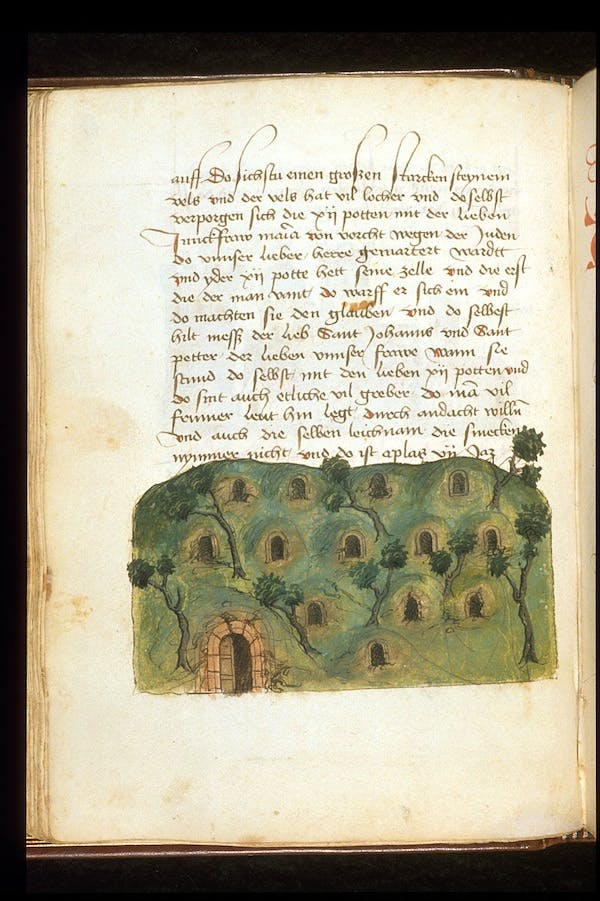 auff Do sichstu einen großen starcken steynein
vels vnd der vels hat vil locher vnd do selbst
verporgen sich die xij potten mit der lieben
Junckfraw maria von vorcht wegen der Juden
do vnnser lieber herre gemartert wardtt
vnd yder xij potte hett seine zelle vnd die erst
die der man vint do warff er sich ein vnd
do machten sie den glauben vnd do selbest
hilt messz der lieb Sant Johanns vnd Sant
petter der lieben vnnser frawe wann sie
stund do selbst mit den lieben xij potten vnd
do sint auch etliche vil greber do mā vil
frummer leut hin legt durch andacht willn
vnd auch die selben leichnam die smecken
nymmer nicht vnd do ist aplas vij Jar